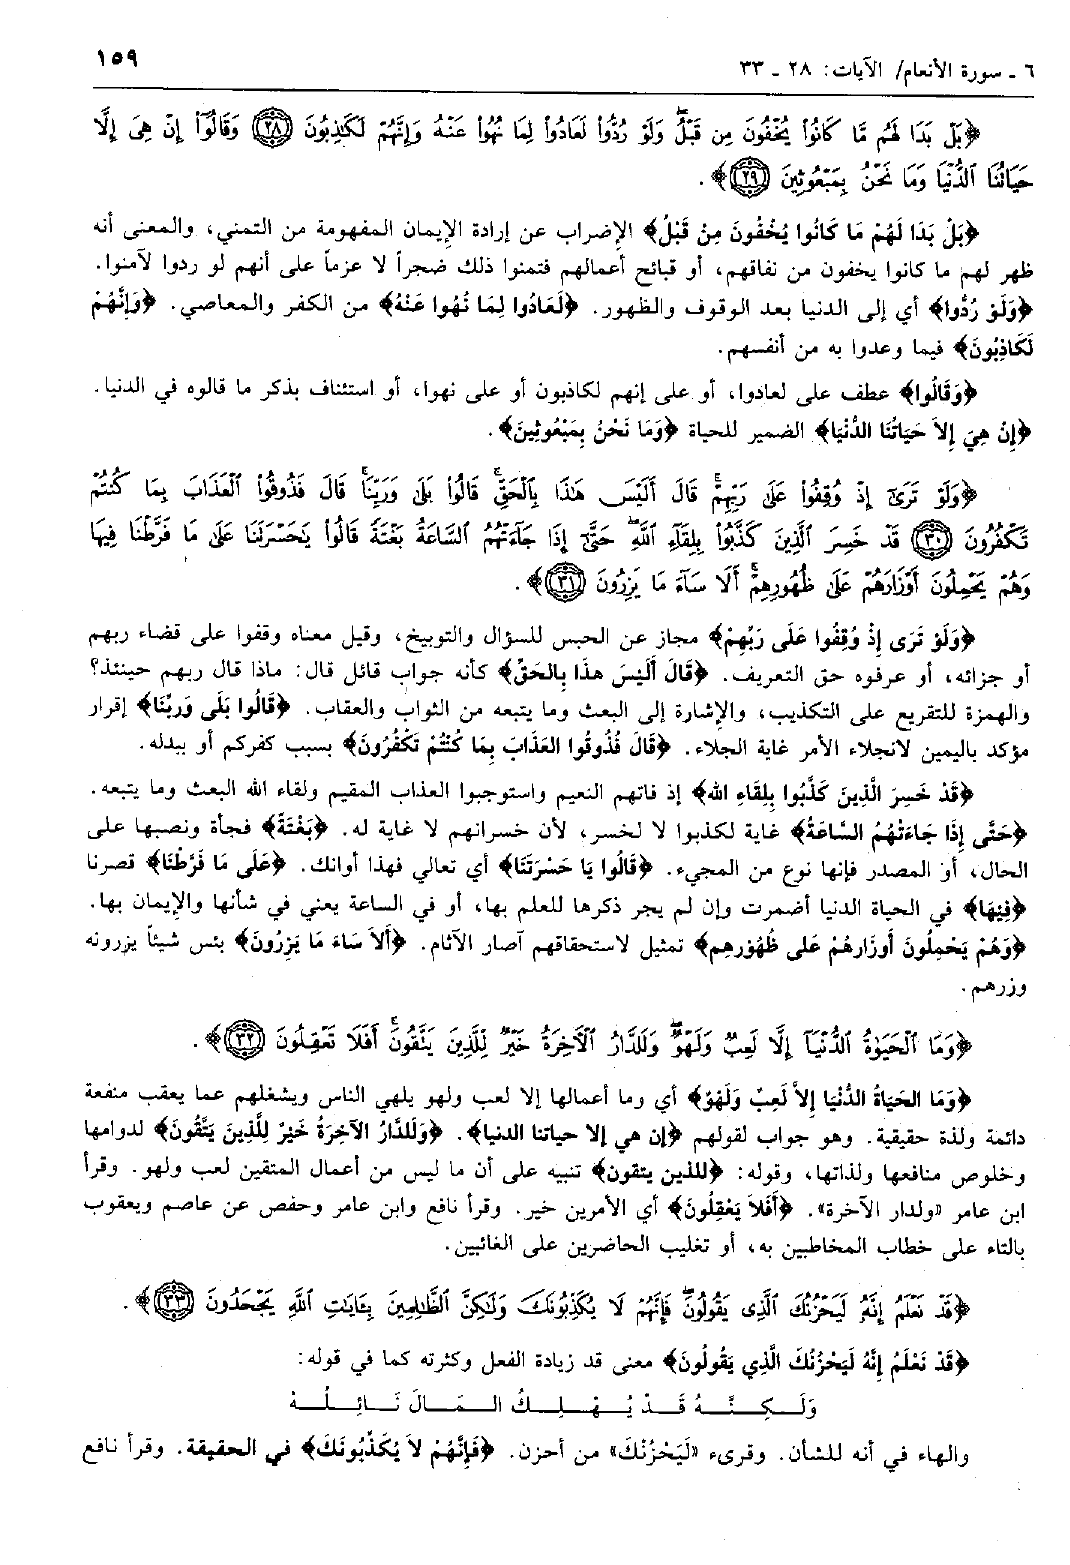 ٦ ـ سورة الأنعام/ الآيات: ٢٨ ـ ٣٣
١٥٩
﴿بَلْ بَدَا لَهُم مَّا كَانُوا۟ يُخْفُونَ مِن قَبْلُ ۖ وَلَوْ رُدُّوا۟ لَعَادُوا۟ لِمَا نُهُوا۟ عَنْهُ وَإِنَّهُمْ لَكَـٰذِبُونَ ﴿٢٨﴾ وَقَالُوٓا۟ إِنْ هِىَ إِلَّا
حَيَاتُنَا ٱلدُّنْيَا وَمَا نَحْنُ بِمَبْعُوثِينَ ﴿٢٩﴾﴾.
﴿بَلْ بَدَا لَهُمْ مَا كَانُوا يُخْفُونَ مِنْ قَبْلُ﴾ الإضراب عن إرادة الإيمان المفهومة من التمني، والمعنى أنه
ظهر لهم ما كانوا يخفون من نفاقهم، أو قبائح أعمالهم فتمنوا ذلك ضجراً لا عزماً على أنهم لو ردوا لآمنوا.
﴿وَلَوْ رُدُّوا﴾ أي إلى الدنيا بعد الوقوف والظهور. ﴿لَعَادُوا لِمَا نُهُوا عَنْهُ﴾ من الكفر والمعاصي. ﴿وَإِنَّهُمْ
لَكَاذِبُونَ﴾ فيما وعدوا به من أنفسهم.
﴿وَقَالُوا﴾ عطف على لعادوا، أو على إنهم لكاذبون أو على نهوا، أو استئناف بذكر ما قالوه في الدنيا.
﴿إِنْ هِيَ إِلاَّ حَيَاتُنَا الدُّنْيَا﴾ الضمير للحياة ﴿وَمَا نَحْنُ بِمَبْعُوثِينَ﴾.
﴿وَلَوْ تَرَىٰٓ إِذْ وُقِفُوا۟ عَلَىٰ رَبِّهِمْ ۚ قَالَ أَلَيْسَ هَـٰذَا بِٱلْحَقِّ ۚ قَالُوا۟ بَلَىٰ وَرَبِّنَا ۚ قَالَ فَذُوقُوا۟ ٱلْعَذَابَ بِمَا كُنتُمْ
تَكْفُرُونَ ﴿٣٠﴾ قَدْ خَسِرَ ٱلَّذِينَ كَذَّبُوا۟ بِلِقَآءِ ٱللَّهِ ۖ حَتَّىٰٓ إِذَا جَآءَتْهُمُ ٱلسَّاعَةُ بَغْتَةً قَالُوا۟ يَـٰحَسْرَتَنَا عَلَىٰ مَا فَرَّطْنَا فِيهَا
وَهُمْ يَحْمِلُونَ أَوْزَارَهُمْ عَلَىٰ ظُهُورِهِمْ ۚ أَلَا سَآءَ مَا يَزِرُونَ ﴿٣١﴾﴾.
﴿وَلَوْ تَرَى إِذْ وُقِفُوا عَلَى رَبِّهِمْ﴾ مجاز عن الحبس للسؤال والتوبيخ، وقيل معناه وقفوا على قضاء ربهم
أو جزائه، أو عرفوه حق التعريف. ﴿قَالَ أَلَيْسَ هذَا بِالحَقِّ﴾ كأنه جواب قائل قال: ماذا قال ربهم حينئذ؟
والهمزة للتقريع على التكذيب، والإشارة إلى البعث وما يتبعه من الثواب والعقاب. ﴿قَالُوا بَلَى وَرَبِّنَا﴾ إقرار
مؤكد باليمين لانجلاء الأمر غاية الجلاء. ﴿قَالَ فَذُوقُوا العَذَابَ بِمَا كُنْتُمْ تَكْفُرُونَ﴾ بسبب كفركم أو ببدله.
﴿قَدْ خَسِرَ الَّذِينَ كَذَّبُوا بِلِقَاءِ الله﴾ إذ فاتهم النعيم واستوجبوا العذاب المقيم ولقاء الله البعث وما يتبعه.
﴿حَتَّى إِذَا جَاءَتْهُمُ السَّاعَةُ﴾ غاية لكذبوا لا لخسر، لأن خسرانهم لا غاية له. ﴿بَغْتَةً﴾ فجأة ونصبها على
الحال، أو المصدر فإنها نوع من المجيء. ﴿قَالُوا يَا حَسْرَتَنَا﴾ أي تعالي فهذا أوانك. ﴿عَلَى مَا فَرَّطْنَا﴾ قصرنا
﴿فِيْهَا﴾ في الحياة الدنيا أضمرت وإن لم يجر ذكرها للعلم بها، أو في الساعة يعني في شأنها والإيمان بها.
﴿وَهُمْ يَحْمِلُونَ أَوزَارهُمْ عَلَى ظُهُورِهِم﴾ تمثيل لاستحقاقهم آصار الآثام. ﴿أَلاَ سَاءَ مَا يَزِرُونَ﴾ بئس شيئاً يزرونه
وزرهم.
﴿وَمَا ٱلْحَيَوٰةُ ٱلدُّنْيَآ إِلَّا لَعِبٌ وَلَهْوٌ ۖ وَلَلدَّارُ ٱلْـَٔاخِرَةُ خَيْرٌ لِّلَّذِينَ يَتَّقُونَ ۗ أَفَلَا تَعْقِلُونَ ﴿٣٢﴾﴾.
﴿وَمَا الحَيَاةُ الدُّنْيَا إِلاَّ لَعِبٌ وَلَهْوٌ﴾ أي وما أعمالها إلا لعب ولهو يلهي الناس ويشغلهم عما يعقب منفعة
دائمة ولذة حقيقية. وهو جواب لقولهم ﴿إن هي إلا حياتنا الدنيا﴾. ﴿وَلَلدَّارُ الآخِرَةُ خَيْرٌ لِلَّذِينَ يَتَّقُونَ﴾ لدوامها
وخلوص منافعها ولذاتها، وقوله: ﴿للذين يتقون﴾ تنبيه على أن ما ليس من أعمال المتقين لعب ولهو. وقرأ
ابن عامر «ولدار الآخرة». ﴿أَفَلاَ يَعْقِلُونَ﴾ أي الأمرين خير. وقرأ نافع وابن عامر وحفص عن عاصم ويعقوب
بالتاء على خطاب المخاطبين به، أو تغليب الحاضرين على الغائبين.
﴿قَدْ نَعْلَمُ إِنَّهُۥ لَيَحْزُنُكَ ٱلَّذِى يَقُولُونَ ۖ فَإِنَّهُمْ لَا يُكَذِّبُونَكَ وَلَـٰكِنَّ ٱلظَّـٰلِمِينَ بِـَٔايَـٰتِ ٱللَّهِ يَجْحَدُونَ ﴿٣٣﴾﴾.
﴿قَدْ نَعْلَمُ إِنَّهُ لَيَحْزُنُكَ الَّذِي يَقُولُونَ﴾ معنى قد زيادة الفعل وكثرته كما في قوله:
وَلَـكِـنَّـهُ قَـدْ يُـهْـلِـكُ الـمَـالَ نَـائِـلُـهْ
والهاء في أنه للشأن. وقرىء «لَيُحْزِنُكَ» من أحزن. ﴿فَإِنَّهُمْ لاَ يُكَذِّبُونَكَ﴾ في الحقيقة. وقرأ نافع